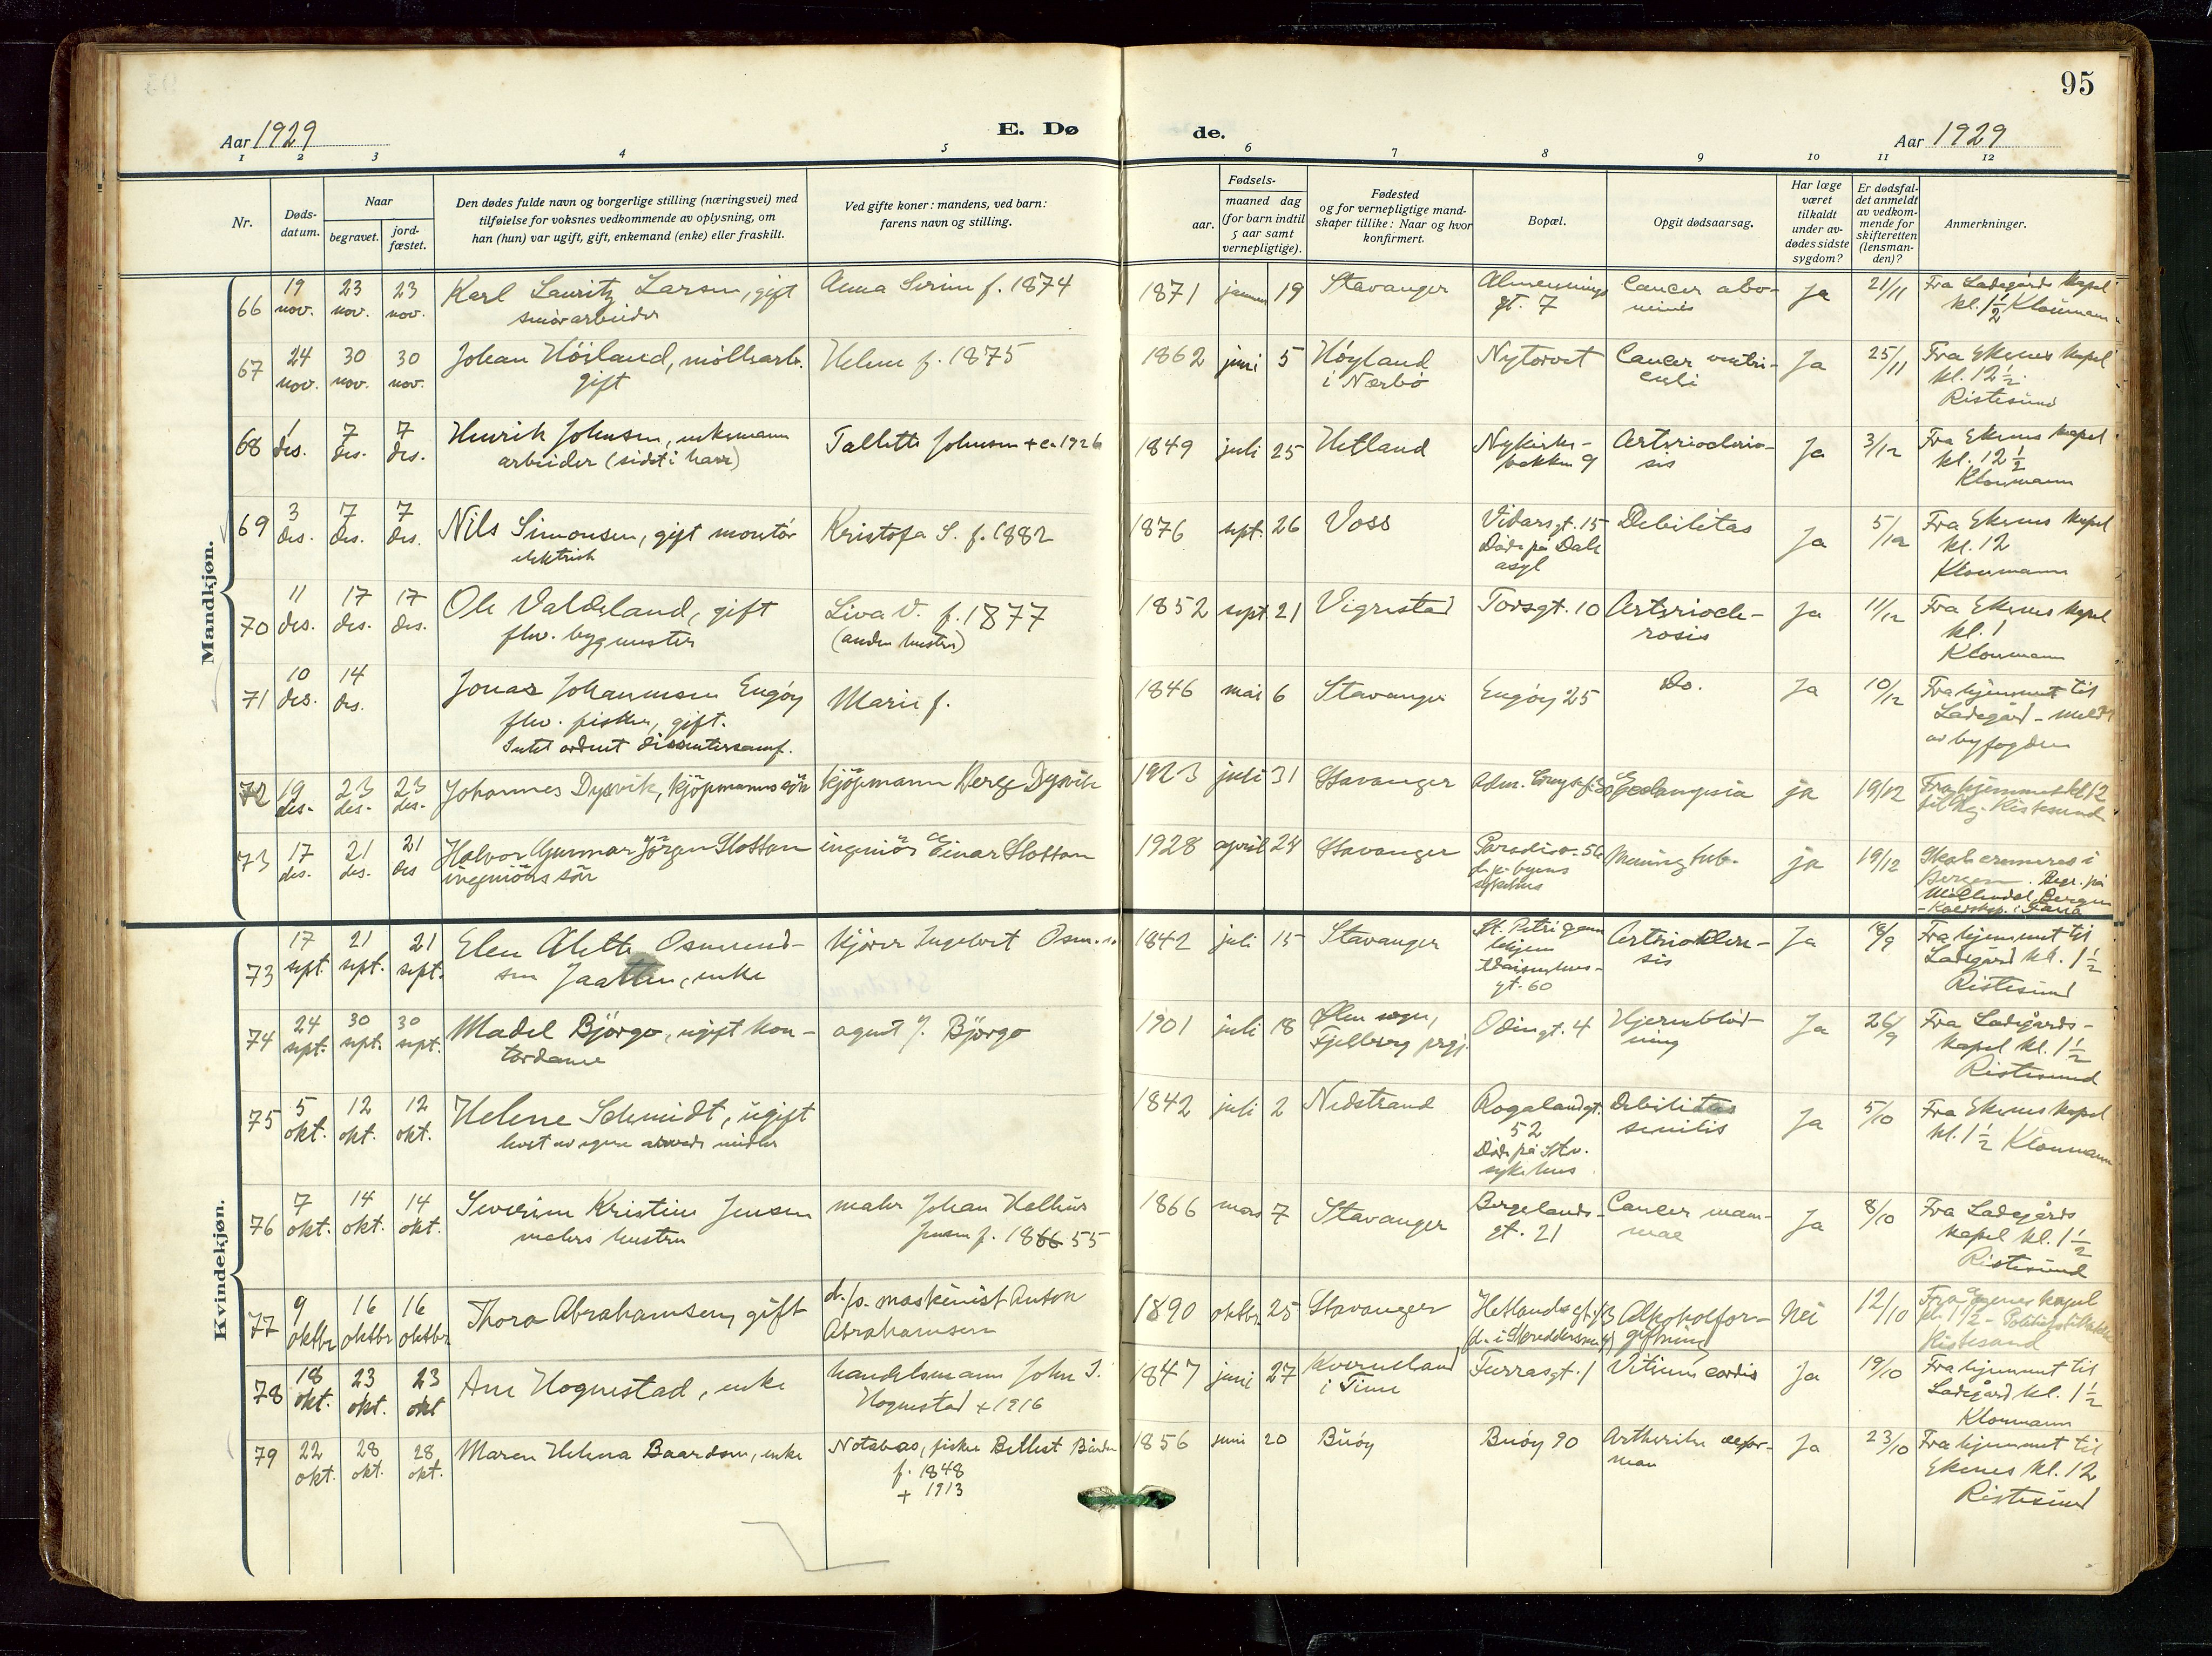 95
Aar 1929
E. Dø
de.
Aar 1929
1 2 3 4 5 6 7 8 9 10 11 12
Nr.
Døds-
datum.
Naar
begravet.
jord-
fæstet.
Den dødes fulde navn og borgerlige stilling (næringsvei) med
tilføielse for voksnes vedkommende av oplysning, om
han (hun) var ugift, gift, enkemand (enke) eller fraskilt.
Ved gifte koner: mandens, ved barn:
farens navn og stilling.
Fødsels-
aar.
maaned dag
(for barn indtil
5 aar samt
vernepligtige).
Fødested
og for vernepligtige mand-
skaper tillike: Naar og hvor
konfirmert.
Bopæl.
Opgit dødsaarsag.
Har læge
været
tilkaldt
under av-
dødes sidste
sygdom?
Er dødsfal-
det anmeldt
av vedkom-
mende for
skifteretten
(lensman-
den)?
Anmerkninger.
Mandkjøn.
66 19 nov. 23 nov. 23 nov.
Karl Lauritz Larsen, gift
Anna f. 1874
1871 januar 19 Stavanger
Almennings
gt. 7
Cancer abo-
minis
Ja 21/11
Fra Ladegårds kapel
kl. 1 1/2 Kloumann
67 24 nov. 30 nov. 30 nov.
Johan Höiland, möllearb.
gift
Helene f. 1875
1862 juni 5
Höyland
i Nærbö
Nytorvet
Cancer ventri-
culi
Ja 25/11
Fra Ekenes kapel
kl. 12 1/2
Ristesund
68 1 des. 7 des. 7 des.
Henrik Johnsen, enkemann
arbeider (sidst i havn)
Tallette Johnsen + ca. 1926
1849 juli 25 Hetland
Nykirke-
bakken 9
Arterioclero-
sis
Ja 3/12
Fra Ekenes kapel
kl. 12 1/2
Kloumann
69 3 des. 7 des. 7 des.
Nils Simonsen, gift montör
elektrisk
Kristofa S. f. 1882
1876 sept. 26 Voss
Vidarsgt. 15
Död på Dale
asyl
Debilitas
Ja 5/12
Fra Ekenes kapel
kl. 12
Kloumann
70 11 des. 17 des. 17 des.
Ole Valdeland, gift
fhv. bygmester
Liva V. f. 1877
(anden hustru)
1852 sept. 21 Vigrestad Torsgt. 10
Arteriocle-
rosis
Ja 11/12
Fra Ekenes kapel
kl. 1
Kloumann
71 10 des. 14 des.
Jonas Johannesen Engöy
fhv. fisker, gift.
Intet ordnet dissentersamf.
Marie f.
1846 mai 6 Stavanger Engöy 25 do. Ja 10/12
Fra hjemmet til
Ladegård - meldt
av byfogden
72 19 des. 23 des. 23 des.
Johannes Dysvik, kjöpmanns sön
kjöpmann Dysvik
1923 juli 31 Stavanger
ja 19/12
Fra hjemmet kl 12
Ristesund
73 17 des. 21 des. 21 des
Halvor Gunnar Jörgen Slottan
ingeniörs sön
ingeniör Einar Slottan
1928 april 24 Stavanger
Paradisv. 56
d. p. byens
sykehus
Mening tub.
ja 19/12
Skal cremeres i
Bergen.
Kvindekjøn.
73 17 sept. 21 sept. 21 sept.
Elen Alette Osmund-
sen Jaatten, enke
kjörer Ingebret Osm.
1842 juli 15 Stavanger
St. Petri gam
lehjem
Vaisenhus-
gt. 60
Arterioklero-
sis
Ja 18/9
Fra hjemmet til
Ladegård kl. 1 1/2
Ristesund
74 24 sept. 30 sept. 30 sept.
Madel Björgo, ugift kon-
tordame
agent J. Björgo
1901 juli 18
Ølen sogn,
Fjelberg prgj.
Odingt. 4
Hjerneblöd-
ning
Ja 26/9
Fra Ladegårds-
kapel kl. 1 1/2
Ristesund
75 5 okt. 12 okt. 12 okt.
Helene Schmidt, ugift
levet av egne midler
1842 juli 2 Nedstrand
Rogalandgt.
52
Död på Stv.
sykehus
Debilitas
senilis
Ja 5/10
Fra Ekenes kapel
kl. 1 1/2 Kloumann
76 7 okt. 14 okt. 14 okt.
Severine Kristine Jensen
malers hustru
maler Johan
Jensen f. 1866 55
1866 mars 7 Stavanger
Bergelands-
gt. 21
Cancer mam-
mae
Ja 8/10
Fra Ladegårds
kapel kl. 1 1/2
Ristesund
77 9 oktbr 16 oktbr 16 oktbr
Thora Abrahamsen, gift
d./s. maskinist Anton
Abrahamsen
1890 oktbr. 25 Stavanger
Hetlandsgt.
Alkoholfor-
giftning
Nei 12/10
Fra Egenes kapel
kl. 1 1/2 -
Ristesund
78 18 okt. 23 okt. 23 okt
Ane Hognestad, enke
handelsmann John T.
Hognestad + 1916
1847 juni 27
Kverneland
i Time
Turrasgt. 1 Vitium cordis
Ja 19/10
Fra hjemmet til
Ladegård kl. 1 1/2
Kloumann
79 22 okt. 28 okt. 28 okt.
Maren Helena Baardsen, enke
Notabas, fisker
f. 1848
+ 1913
1856 juni 20 Buöy Buöy 90
Ja 23/10
Fra hjemmet til
Ekenes kl. 12
Ristesund